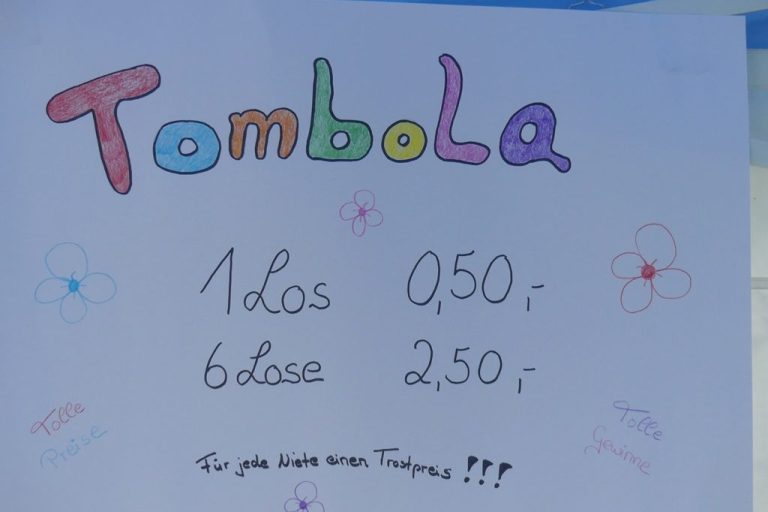 Tombola
1 Los 0,50,-
6 Lose 2,50,-
Tolle
Preise
Tolle
Gewinne
Für jede Niete einen Trostpreis !!!